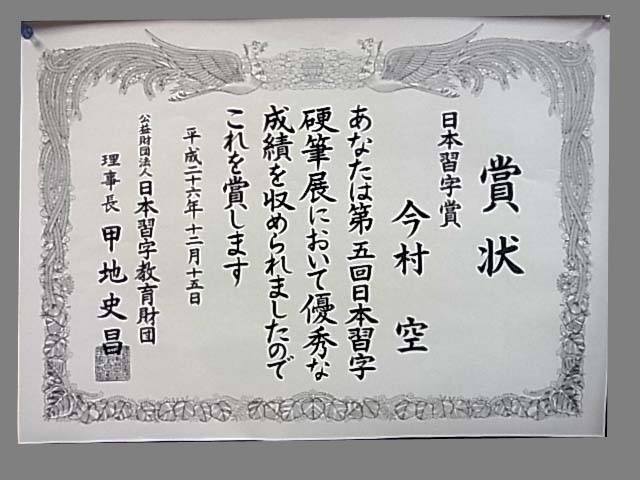 賞状
日本習字賞
今村 空
あなたは第五回日本習字
硬筆展において優秀な
成績を収められましたので
これを賞します
平成二十六年十二月十五日
公益財団法人日本習字教育財団
理事長 甲地史昌